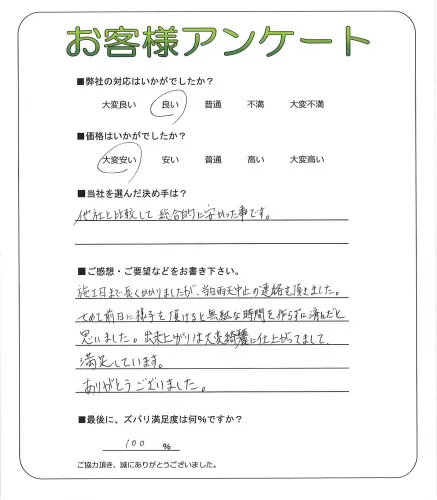 お客様アンケート
■弊社の対応はいかがでしたか?
大変良い 良い 普通 不満 大変不満
■価格はいかがでしたか?
大変安い 安い 普通 高い 大変高い
■当社を選んだ決め手は?
他社と比較して総合的に安かった事です。
■ご感想・ご要望などをお書き下さい。
施工日まで長くかかりましたが、当日雨天中止の連絡を頂きました。
せめて前日に様子を頂けると無駄な時間を作らずに済んだと
思いました。出来上がりは大変綺麗に仕上がってまして、
満足しています。
ありがとうございました。
■最後に、ズバリ満足度は何%ですか?
100 %
ご協力頂き、誠にありがとうございました。